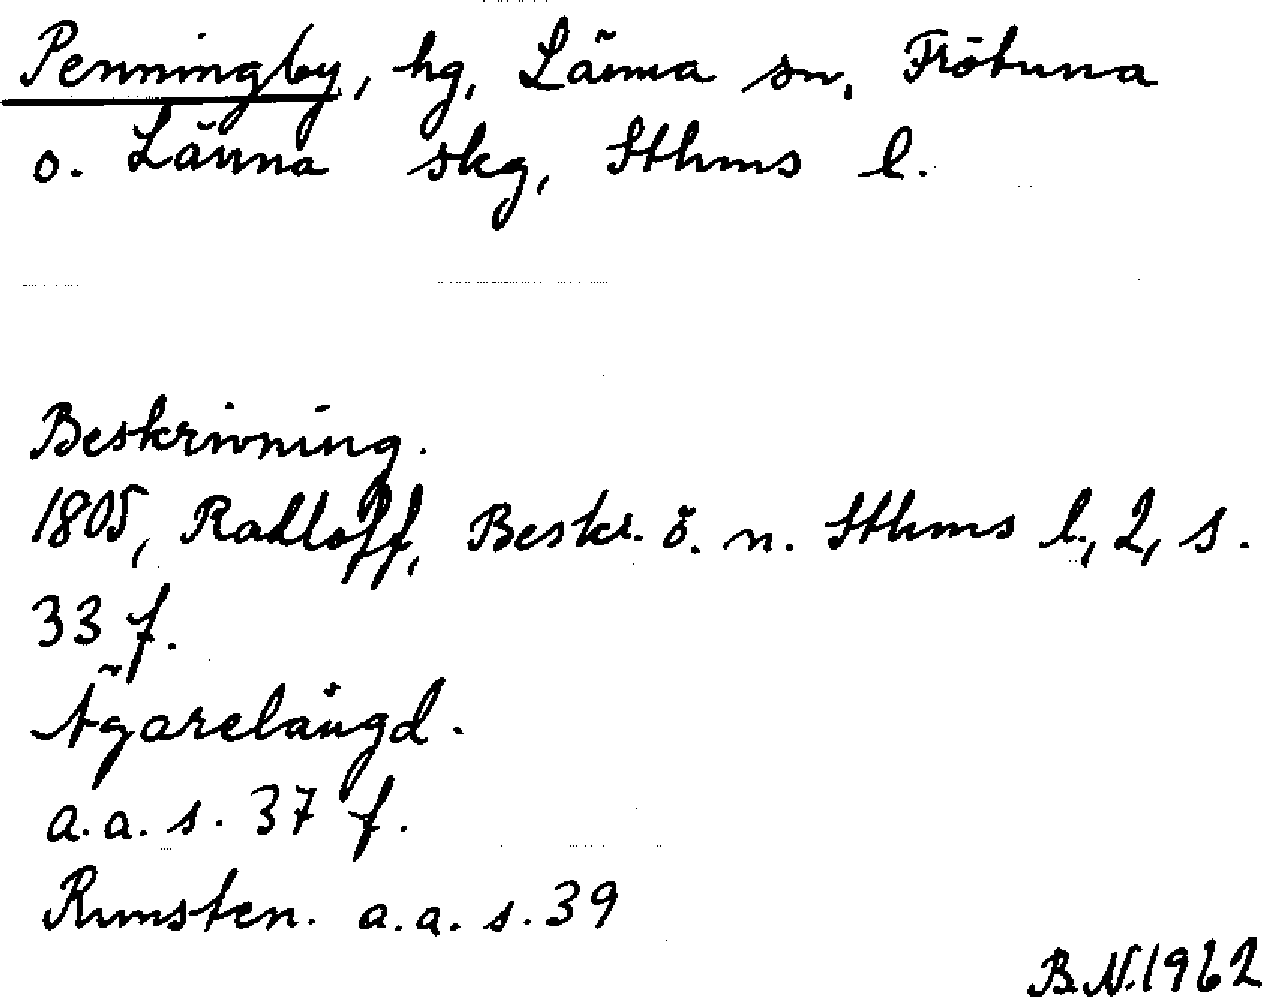 Penningby, hg, Länna sn, Frötuna
o. Länna skg, Sthms l.
Beskrivning.
1805, Radloff, Beskr. ö. n. Sthms l., 2, s.
33 f.
Ägarelängd.
a.a. s. 37 f.
Runsten. a.a. s. 39
B.N.1962